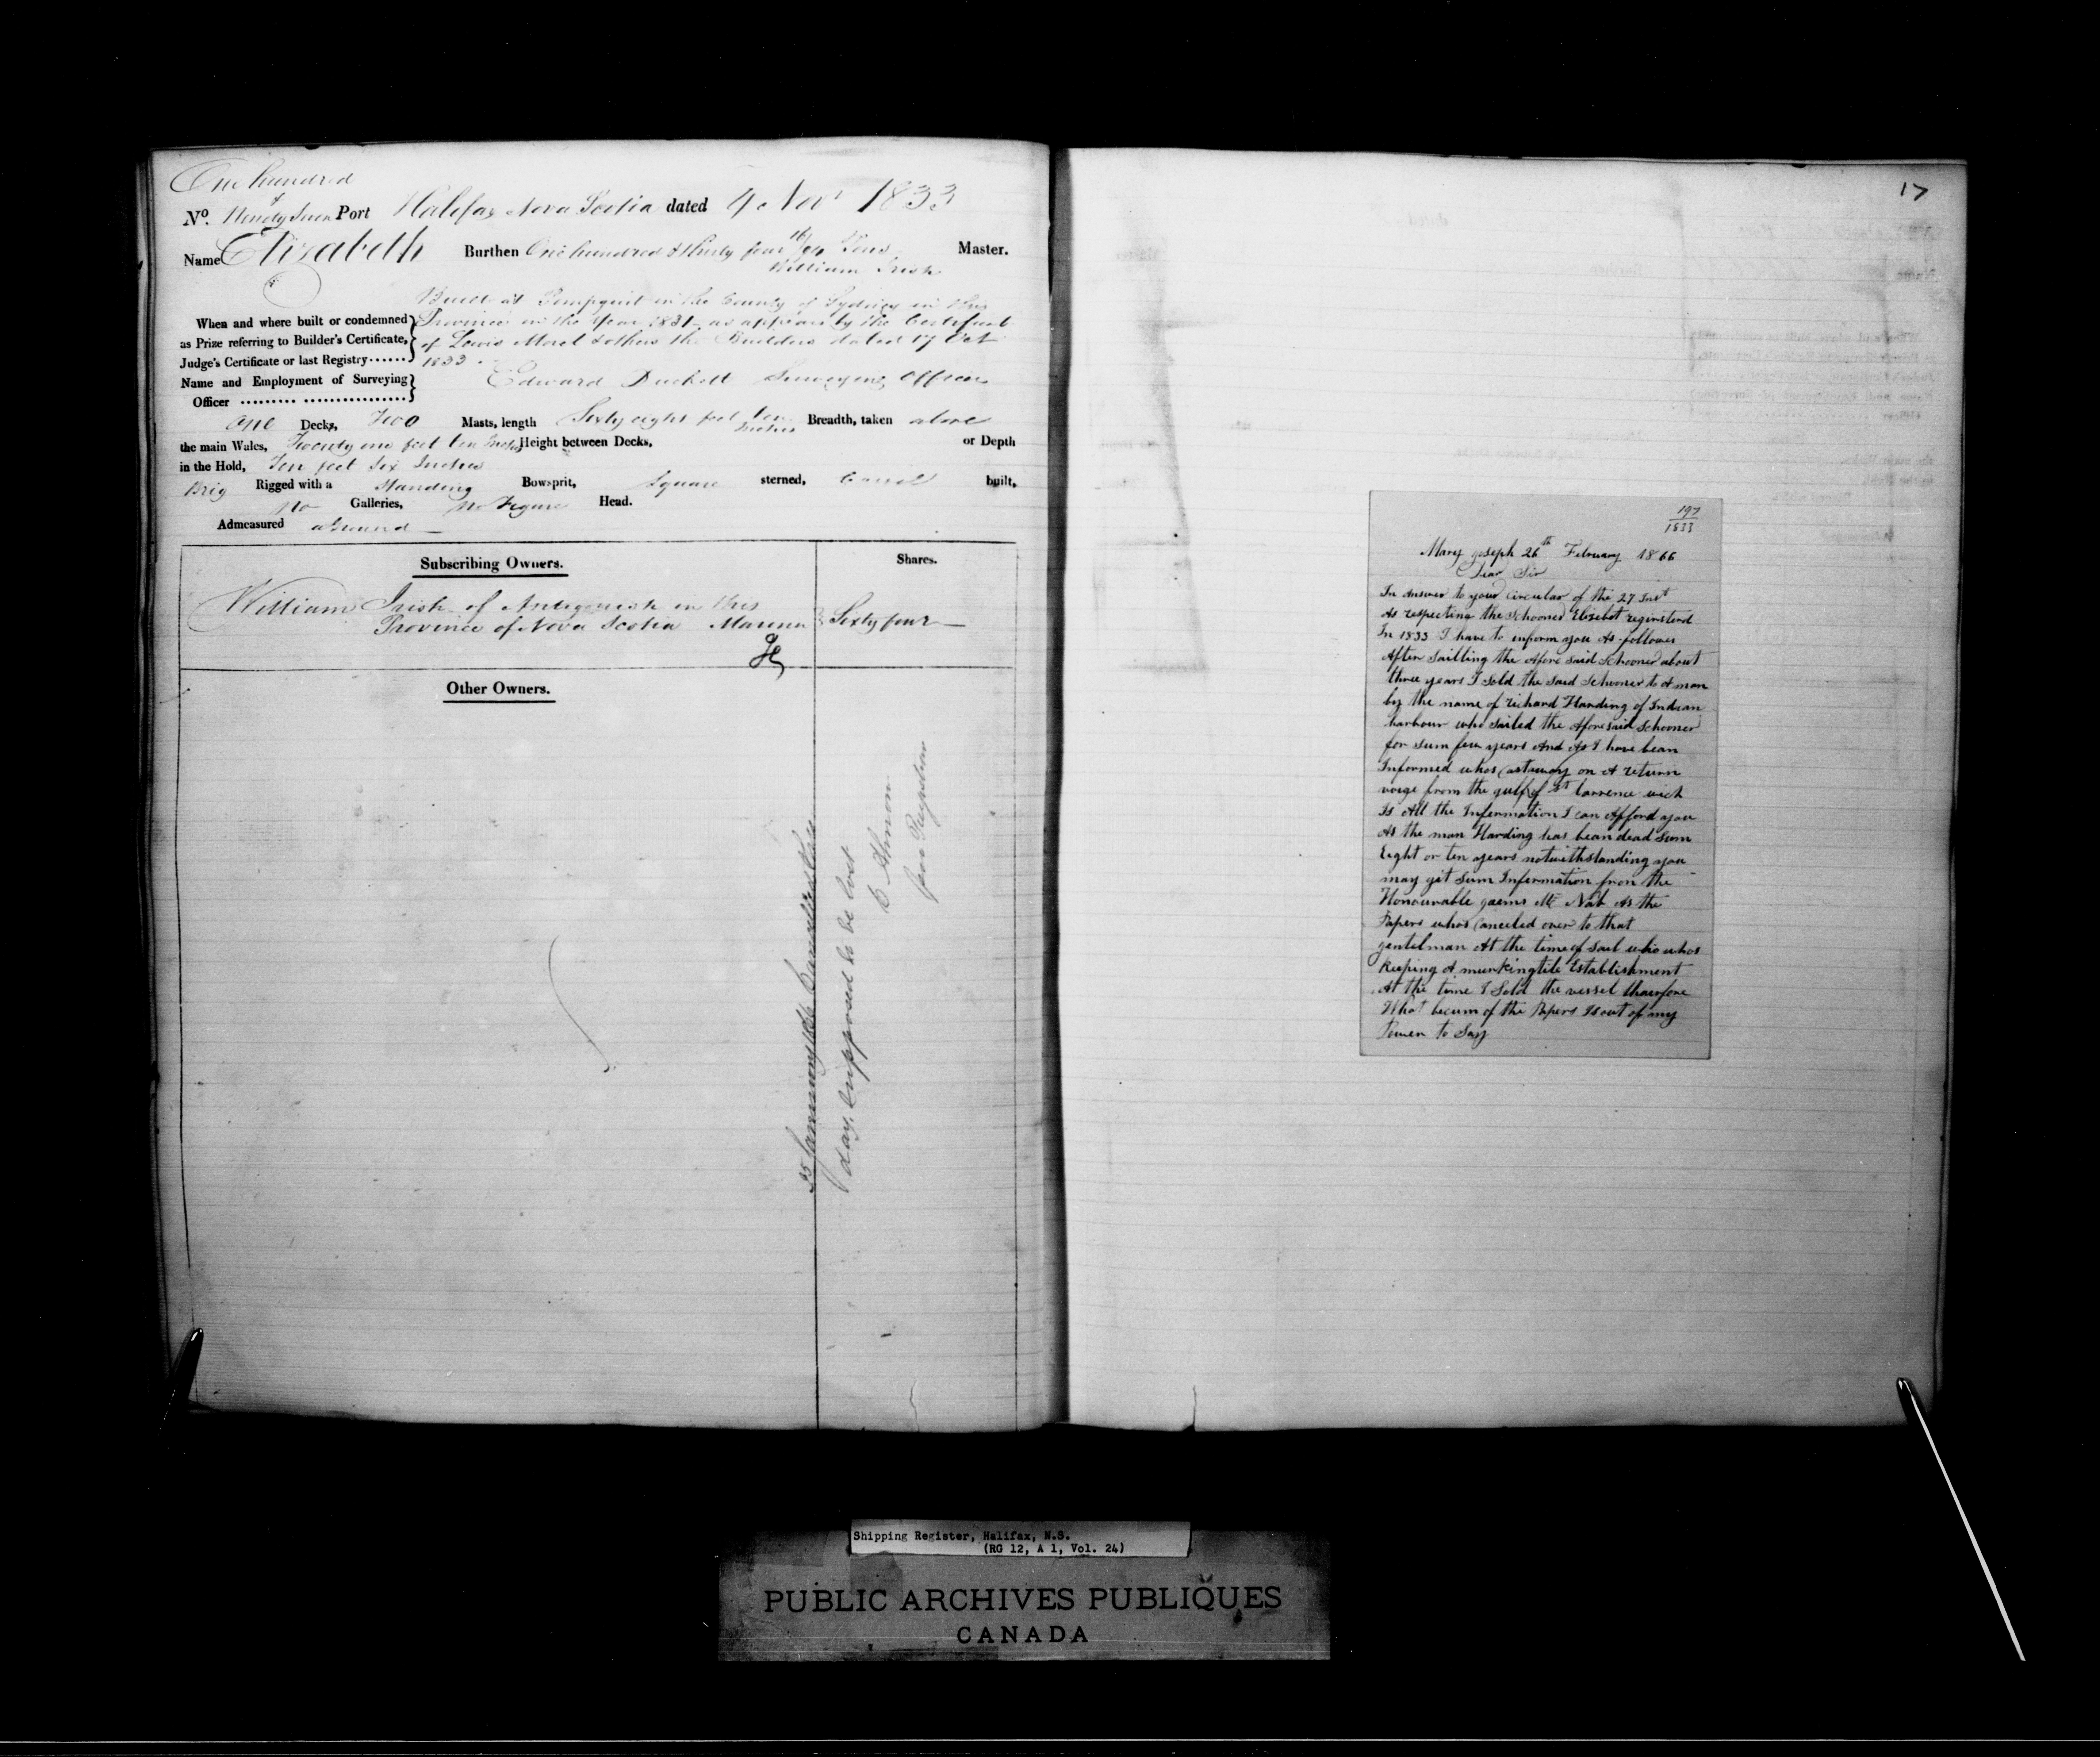 One hundred
No. & Ninety Seven Port Halifax Nova Scotia dated 4 Nov 1833
Name Elizabeth Burthen One hundred & Thirty four 16/94 Tons Master.
William Irish
Built at Pomquit in the County of Sydney in this
When and where built or condemned Province in the Year 1831 as appears by the Certificate
as Prize referring to Builder's Certificate, of Lewis Morel & others the Builders dated 17 Oct
Judge's Certificate or last Registry 1833.
Name and Employment of Surveying Edward Duckett Surveying Officer
Officer
One Decks, Two Masts, length Sixty eight feet ten Inches Breadth, taken above
the main Wales, Twenty one feet ten Inches Height between Decks, or Depth
in the Hold, Ten feet Six Inches
Brig Rigged with a Standing Bowsprit, Square sterned, Carvel built,
No Galleries, No Figure Head.
Admeasured aground
Subscribing Owners. Shares.
William Irish of Antigonish in this
Province of Nova Scotia Mariner Sixty four
Other Owners.
25 January 1866 Cancelled this
day, supposed to be lost
17
197
1833
Mary Joseph 26th February 1866
Dear Sir
In Answer to your Circular of the 27 Inst
As respecting the Schooner Elizebet reginsterd
In 1833 I have to inform you As follows
After Sailling the Afore said Schooner about
three years I Sold the Said Schooner to A man
by the name of richard Harding of Indian
harbour who Sailed the Aforesaid Schooner
for Sum few years And As I have bean
Informed whos Castaway on A return
voige from the gulf of St larrence wich
Is All the Information I can Afford you
As the man Harding has bean dead Sum
Eight or ten years notwithstanding you
may git Sum Information from the
Honourable gaems Mc Nab As the
Papers whos Canceled over to that
gentelman At the time of Sail who whos
Keeping A murkingtile Establishment
At the time I Sold the vessel thairfore
What becum of the Papers Is out of my
Power to Say
Shipping Register, Halifax, N.S.
(RG 12, A 1, Vol. 24)
PUBLIC ARCHIVES PUBLIQUES
CANADA